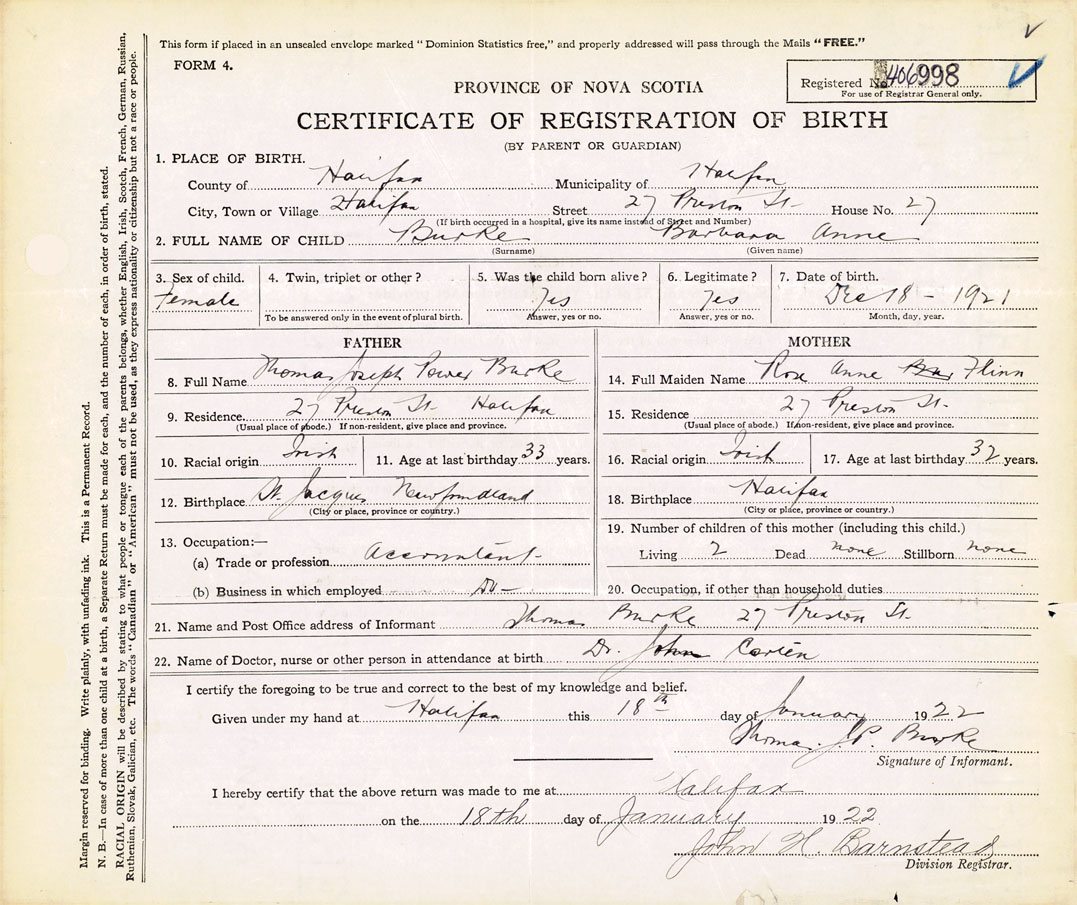 This form if placed in an unsealed envelope marked "Dominion Statistics free," and properly addressed will pass through the Mails "FREE."
FORM 4.
Registered No. 406998
For use of Registrar General only.
PROVINCE OF NOVA SCOTIA
CERTIFICATE OF REGISTRATION OF BIRTH
(BY PARENT OR GUARDIAN)
1. PLACE OF BIRTH.
County of Halifax Municipality of Halifax
City, Town or Village Halifax Street 27 Preston St. House No. 27
(If birth occurred in a hospital, give its name instead of Street and Number)
2. FULL NAME OF CHILD Burke Barbara Anne
(Surname) (Given name)
3. Sex of child. 4. Twin, triplet or other? 5. Was the child born alive? 6. Legitimate? 7. Date of birth.
Female Yes Yes Dec 18 - 1921
To be answered only in the event of plural birth. Answer, yes or no. Answer, yes or no. Month, day, year.
FATHER
8. Full Name Thomas Joseph Power Burke
9. Residence 27 Preston St. Halifax
(Usual place of abode.) If non-resident, give place and province.
10. Racial origin Irish 11. Age at last birthday 33 years.
12. Birthplace St. Jacques Newfoundland
(City or place, province or country.)
13. Occupation:—
(a) Trade or profession Accountant
(b) Business in which employed Do -
MOTHER
14. Full Maiden Name Rose Anne Flinn
15. Residence 27 Preston St.
(Usual place of abode.) If non-resident, give place and province.
16. Racial origin Irish 17. Age at last birthday 32 years.
18. Birthplace Halifax
(City or place, province or country.)
19. Number of children of this mother (including this child.)
Living 2 Dead none Stillborn none
20. Occupation, if other than household duties
21. Name and Post Office address of Informant Thomas Burke 27 Preston St.
22. Name of Doctor, nurse or other person in attendance at birth Dr. John
I certify the foregoing to be true and correct to the best of my knowledge and belief.
Given under my hand at Halifax this 18th day of January 1922
Thomas J. P. Burke
Signature of Informant.
I hereby certify that the above return was made to me at Halifax
on the 18th day of January 1922
John H. Barnstead
Division Registrar.
Margin reserved for binding. Write plainly, with unfading ink. This is a Permanent Record.
N. B.—In case of more than one child at a birth, a Separate Return must be made for each, and the number of each, in order of birth, stated.
RACIAL ORIGIN will be described by stating to what people or tongue each of the parents belongs, whether English, Irish, Scotch, French, German, Russian,
Ruthenian, Slovak, Galician, etc. The words "Canadian" or "American" must not be used, as they express nationality or citizenship but not a race or people.